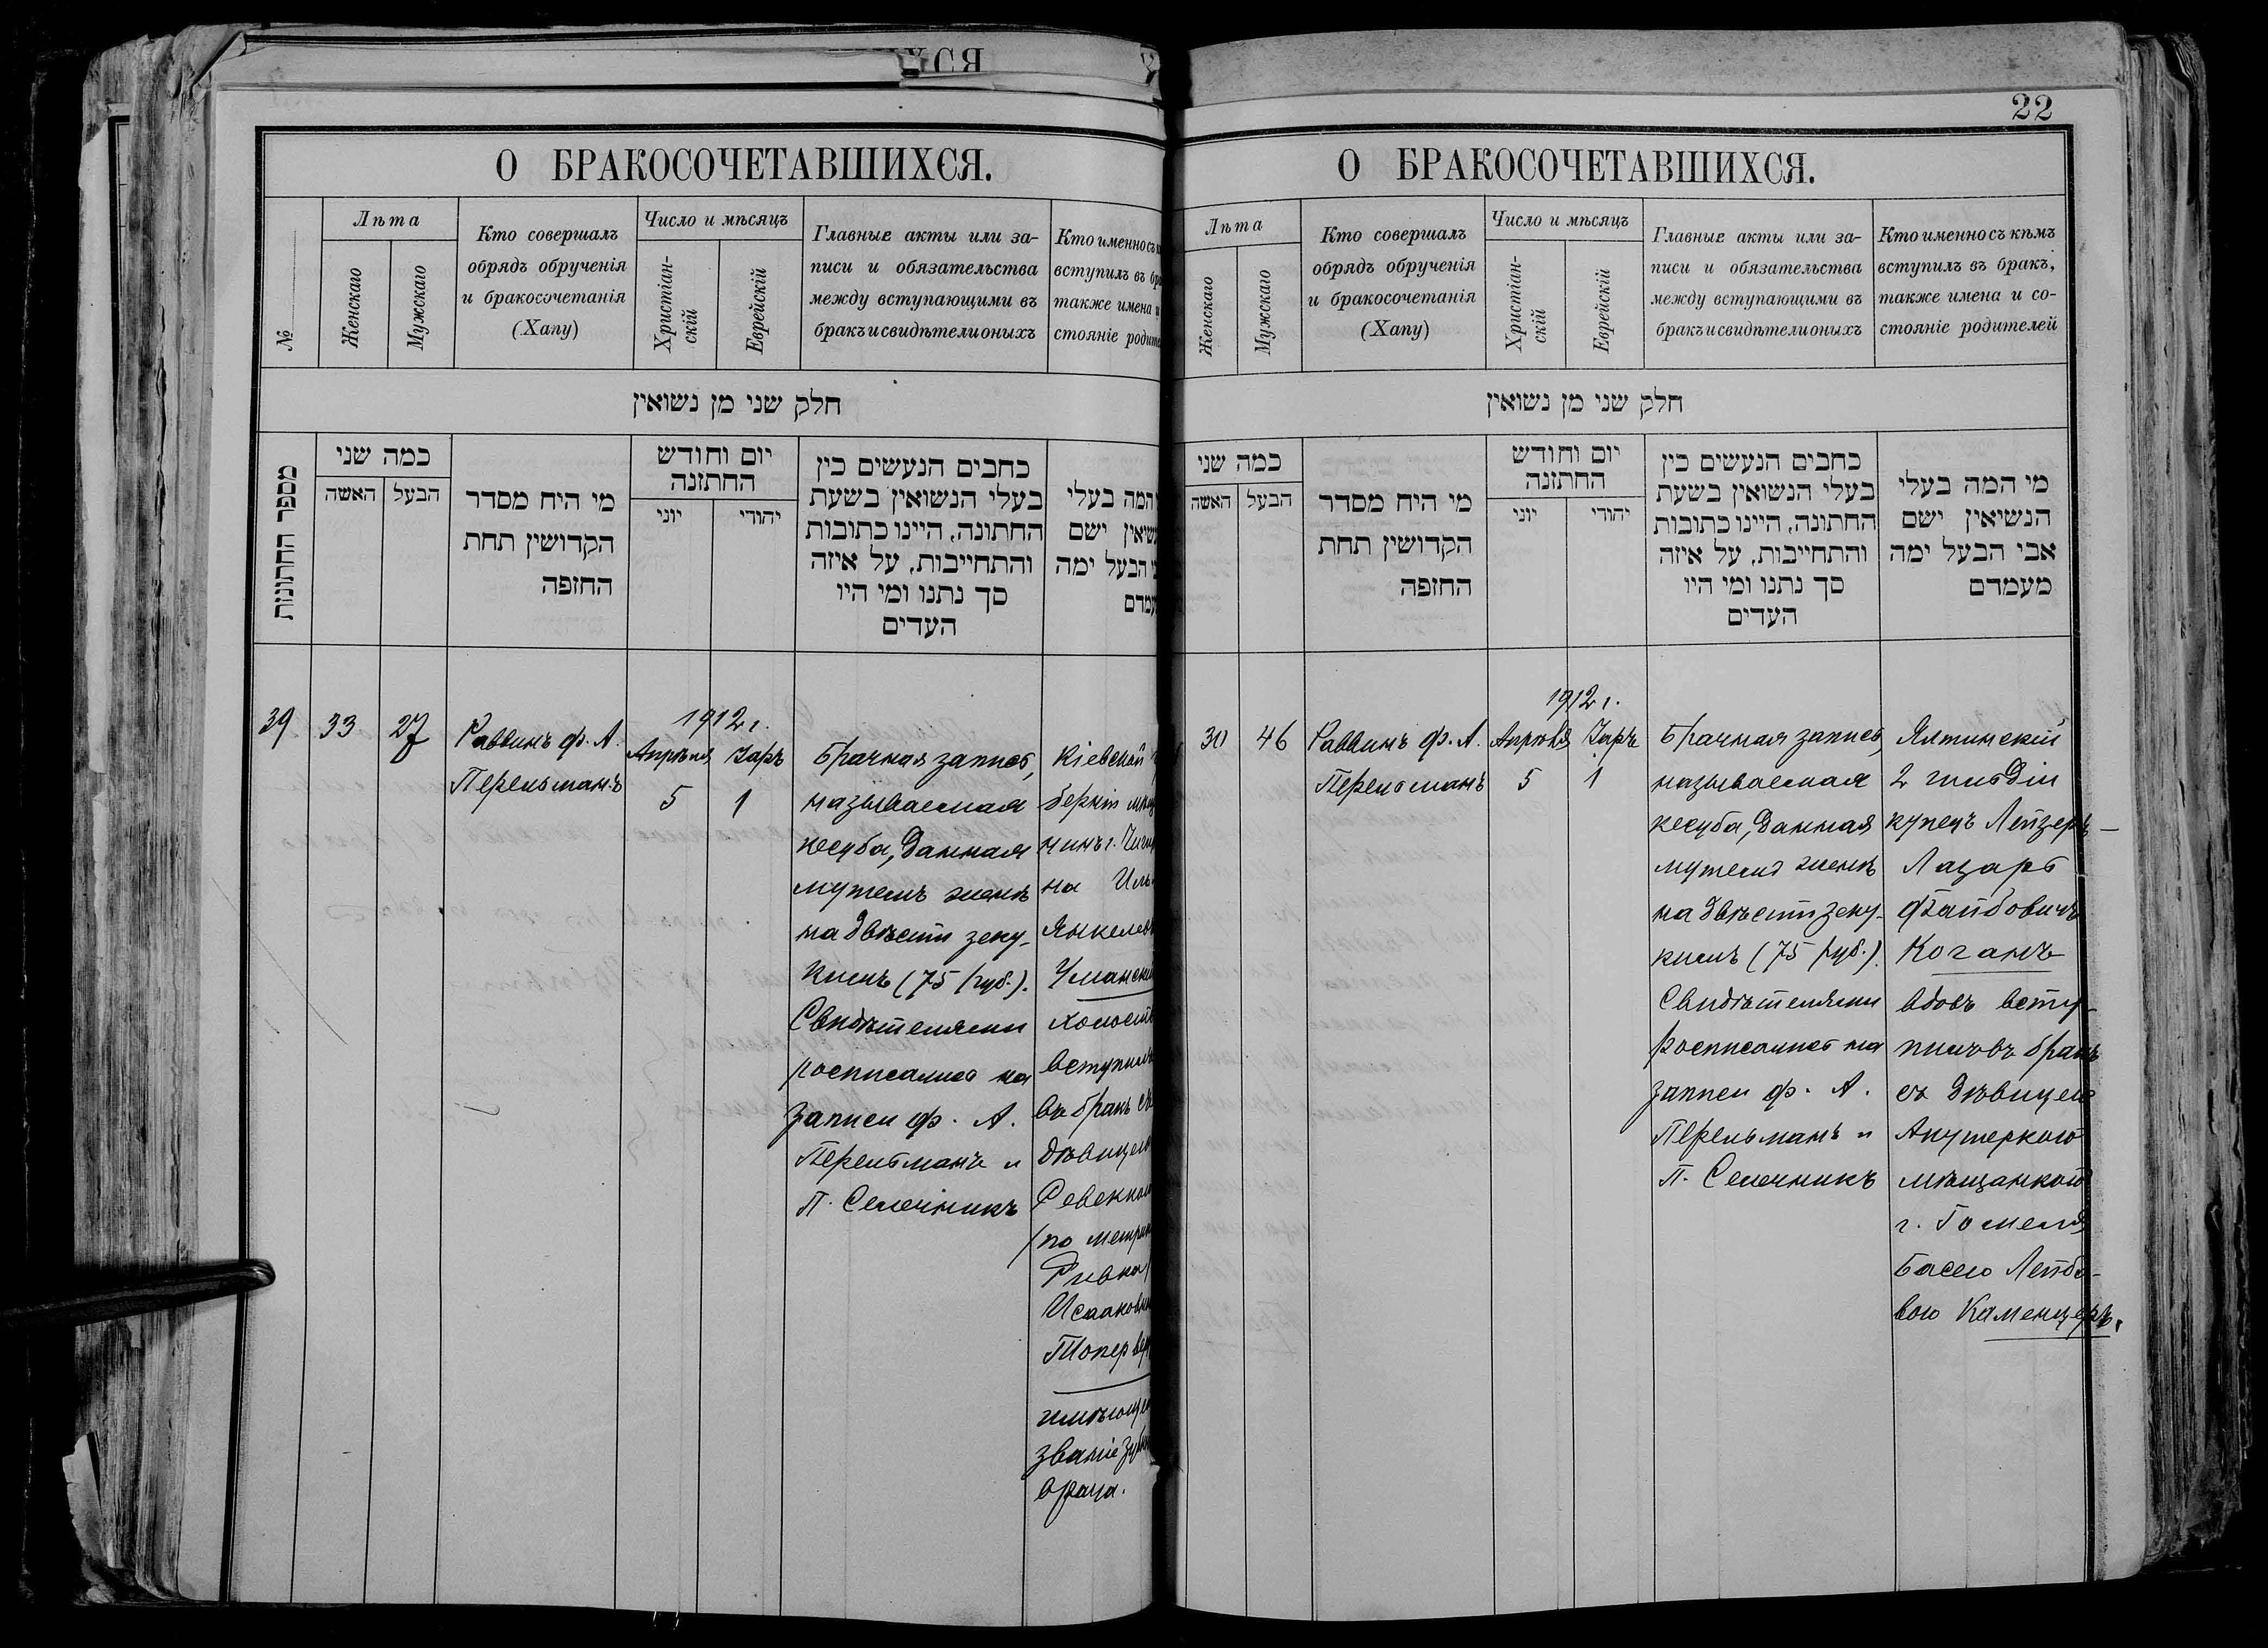 22
О БРАКОСОЧЕТАВШИХСЯ.
№
Лѣта
Женскаго
Мужскаго
Кто совершалъ
обрядъ обрученія
и бракосочетанія
(Хапу)
Число и мѣсяцъ
Христіан-
скій
Еврейскій
Главные акты или за-
писи и обязательства
между вступающими въ
бракъ и свидѣтели оныхъ
Кто именно съ
вступилъ въ бра
также имена и
стояніе родите
חלק שני מן נשואין
מספר החתונות
כמה שני
האשה
הבעל
מי היח מסדר
הקדושין תחת
החופה
יום וחודש
החתונה
יוני
יהודי
כחבים הנעשים כין
בעלי הנשואין בשעת
החתונה, היינו כתובות
והתחייבות, על איזה
סך נתנו ומי היו
העדים
המה בעלי
שיאין ישם
הבעל ימה
עמדם
39
33
27
Раввинъ Ф. А.
Перельманъ
1912 г.
Апрѣля
5
Іаръ
1
Брачная запись,
называемая
кесуба, данная
мужемъ женѣ
на двѣсти зеку-
кимъ (75 руб.).
Свидѣтелями
росписались на
записи Ф. А.
Перельманъ и
П. Семечникъ
Кіевской
берніи мѣщ
нинъ г. Чиги
на Иль
Янкелев
Уманскі
холост
вступилъ
въ бракъ съ
дѣвицею
Ревеккою
(по метрик
Ривка)
Исааковн
Топер вер
имѣющею
званіе зубн
врача.
О БРАКОСОЧЕТАВШИХСЯ.
Лѣта
Женскаго
Мужскаго
Кто совершалъ
обрядъ обрученія
и бракосочетанія
(Хапу)
Число и мѣсяцъ
Христіан-
скій
Еврейскій
Главные акты или за-
писи и обязательства
между вступающими въ
бракъ и свидѣтели оныхъ
Кто именно съ кѣмъ
вступилъ въ бракъ,
также имена и со-
стояніе родителей
חלק שני מן נשואין
כמה שני
האשה
הבעל
מי היח מסדר
הקדושין תחת
החופה
יום וחודש
החתונה
יוני
יהודי
כחבים הנעשים כין
בעלי הנשואין בשעת
החתונה, היינו כתובות
והתחייבות, על איזה
סך נתנו ומי היו
העדים
מי המה בעלי
הנשיאין ישם
אבי הבעל ימה
מעמדם
30
46
Раввинъ Ф. А.
Перельманъ
1912 г.
Апрѣля
5
Іаръ
1
Брачная запись,
называемая
кесуба, данная
мужемъ женѣ
на двѣсти зеку-
кимъ (75 руб.).
Свидѣтелями
росписались на
записи Ф. А.
Перельманъ и
П. Семечникъ
Ялтинскій
2 гильдіи
купецъ Лейзеръ-
Лазарь
Файбовичъ
Коганъ
вдовъ всту-
пилъ въ бракъ
съ дѣвицею
Акушеркою
мѣщанкою
г. Гомеля
Басею Лейбо-
вою Каменцеръ.